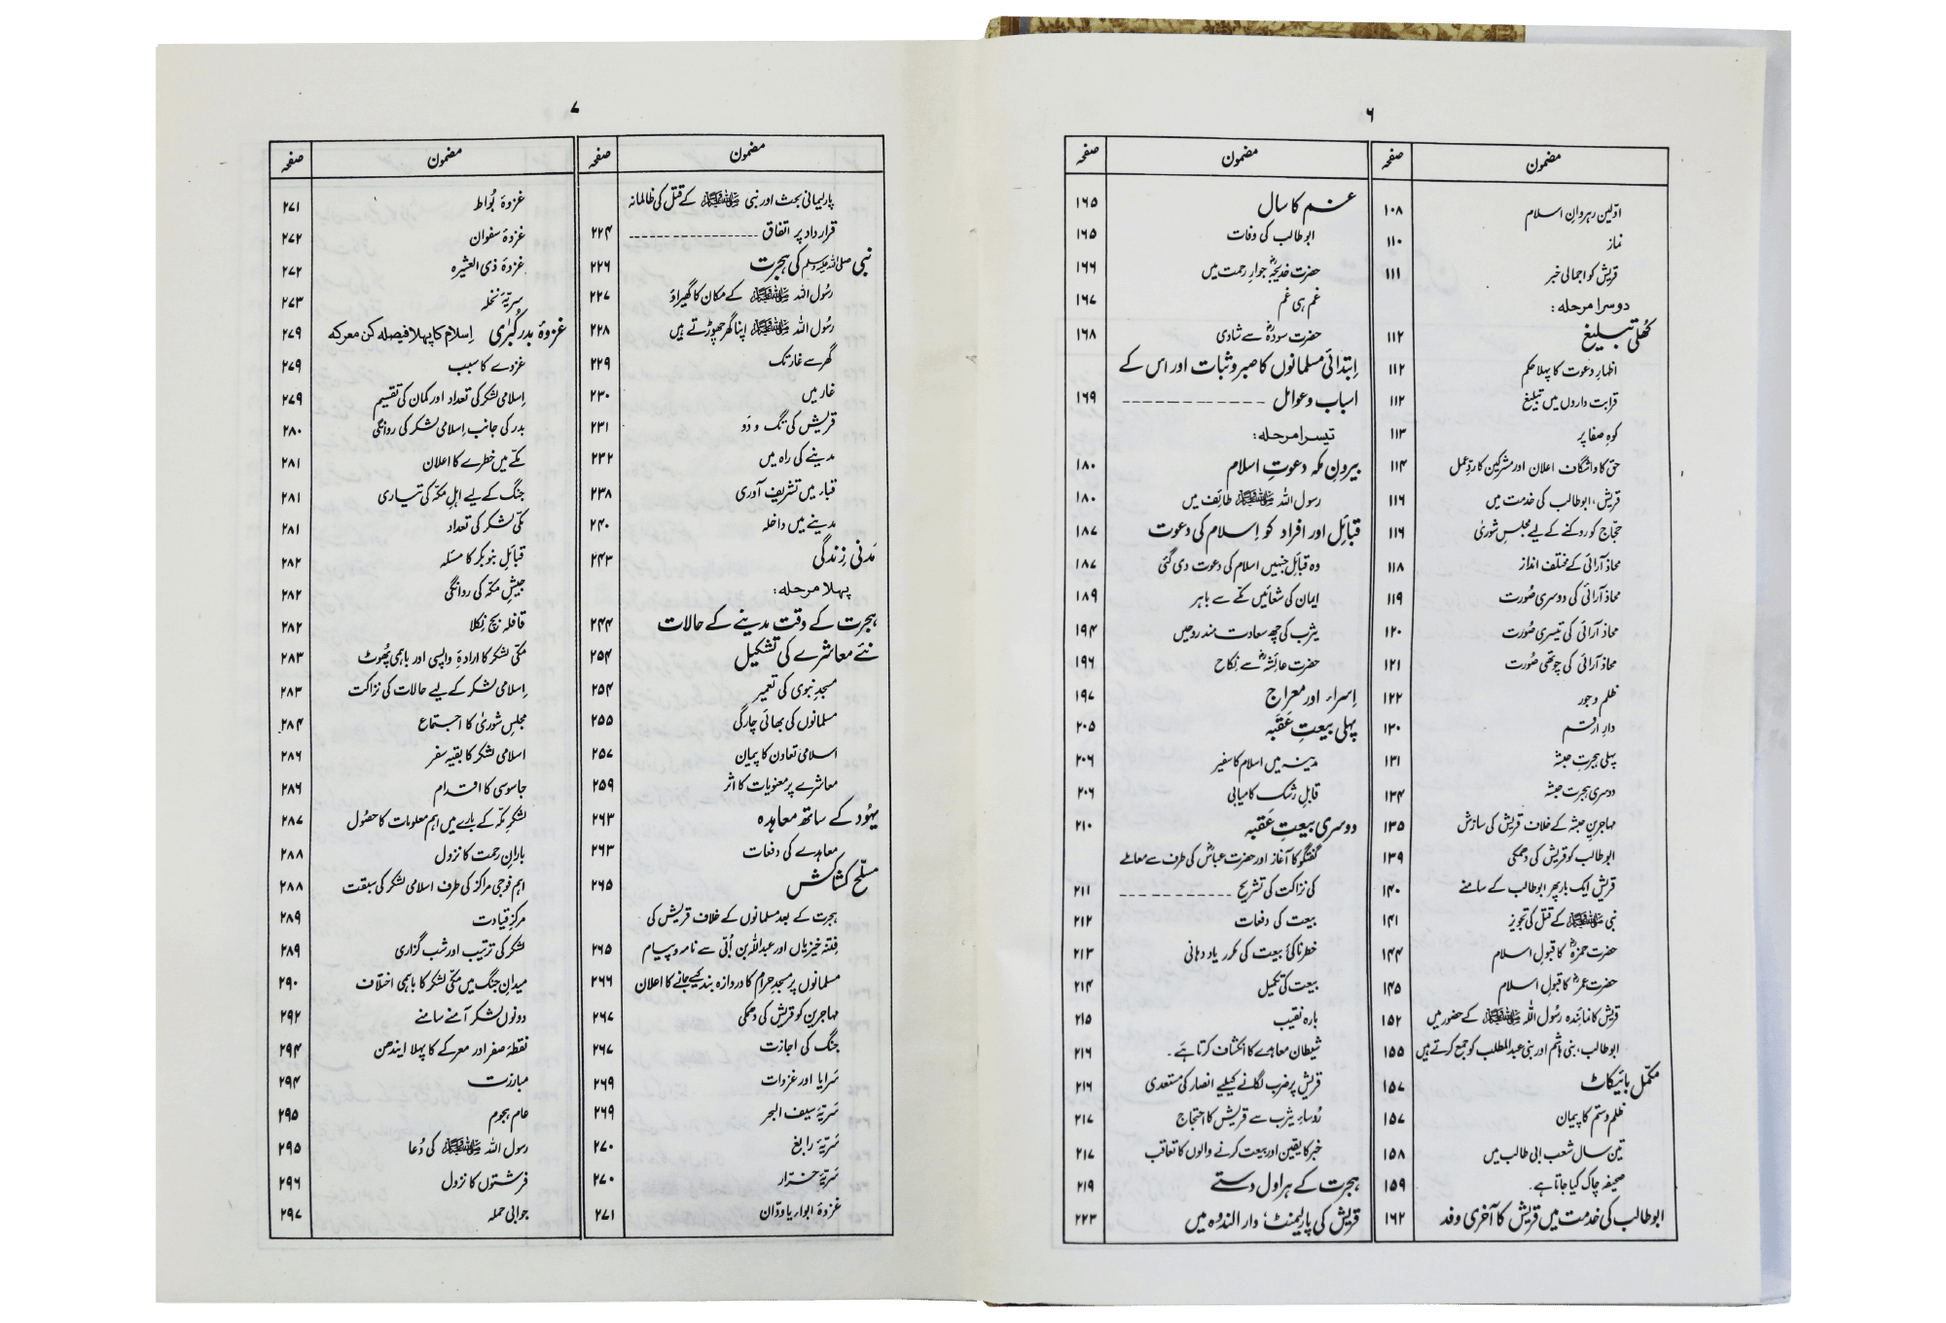 ۶
مضمون صفحہ
اوّلین رہروانِ اسلام ۱۰۸
نماز ۱۱۰
قریش کو اجمالی خبر ۱۱۱
دوسرا مرحلہ:
کھلی تبلیغ ۱۱۲
اظہارِ دعوت کا پہلا حکم ۱۱۲
قرابت داروں میں تبلیغ ۱۱۲
کوہِ صفا پر ۱۱۳
حق کا واشگاف اعلان اور مشرکین کا ردِّ عمل ۱۱۴
قریش، ابوطالب کی خدمت میں ۱۱۶
حجّاج کو روکنے کے لیے مجلسِ شوریٰ ۱۱۶
محاذ آرائی کے مختلف انداز ۱۱۸
محاذ آرائی کی دوسری صُورت ۱۱۹
محاذ آرائی کی تیسری صُورت ۱۲۰
محاذ آرائی کی چوتھی صُورت ۱۲۱
ظلم و جور ۱۲۲
دارِ ارقم ۱۳۰
پہلی ہجرتِ حبشہ ۱۳۱
دوسری ہجرتِ حبشہ ۱۳۴
مہاجرینِ حبشہ کے خلاف قریش کی سازش ۱۳۵
ابوطالب کو قریش کی دھمکی ۱۳۹
قریش ایک بار پھر ابوطالب کے سامنے ۱۴۰
نبی ﷺ کے قتل کی تجویز ۱۴۱
حضرت حمزہؓ کا قبولِ اسلام ۱۴۴
حضرت عمرؓ کا قبولِ اسلام ۱۴۵
قریش کا نمائندہ رسُول اللہ ﷺ کے حضور میں ۱۵۲
ابوطالب، بنی ہاشم اور بنی عبدالمطلب کو جمع کرتے ہیں ۱۵۵
مکمّل بائیکاٹ ۱۵۷
ظلم و ستم کا پیمان ۱۵۷
تین سال شعب ابی طالب میں ۱۵۸
صحیفہ چاک کیا جاتا ہے۔ ۱۵۹
ابوطالب کی خدمت میں قریش کا آخری وفد ۱۶۲
مضمون صفحہ
غم کا سال ۱۶۵
ابوطالب کی وفات ۱۶۵
حضرت خدیجہؓ جوارِ رحمت میں ۱۶۶
غم ہی غم ۱۶۷
حضرت سودہؓ سے شادی ۱۶۸
اِبتدائی مسلمانوں کا صبر و ثبات اور اس کے
اسباب و عوامل ۱۶۹
تیسرا مرحلہ:
بیرونِ مکہ دعوتِ اسلام ۱۸۰
رسول اللہ ﷺ طائف میں ۱۸۰
قبائل اور افراد کو اِسلام کی دعوت ۱۸۷
وہ قبائل جنہیں اسلام کی دعوت دی گئی ۱۸۷
ایمان کی شعائیں مکّے سے باہر ۱۸۹
یثرب کی چھ سعادت مند روحیں ۱۹۴
حضرت عائشہؓ سے نکاح ۱۹۶
اِسراء اور معراج ۱۹۷
پہلی بیعتِ عَقَبہ ۲۰۵
مدینہ میں اسلام کا سفیر ۲۰۶
قابلِ رشک کامیابی ۲۰۶
دوسری بیعتِ عَقَبہ ۲۱۰
گفتگو کا آغاز اور حضرت عباسؓ کی طرف سے معاملے
کی نزاکت کی تشریح ۲۱۱
بیعت کی دفعات ۲۱۲
خطرناکئ بیعت کی مکرر یاد دہانی ۲۱۳
بیعت کی تکمیل ۲۱۴
بارہ نقیب ۲۱۵
شیطان معاہدے کا انکشاف کرتا ہے۔ ۲۱۶
قریش پر ضرب لگانے کیلیے انصار کی مستعدی ۲۱۶
رُوساءِ یثرب سے قریش کا احتجاج ۲۱۷
خبر کا یقین اور بیعت کرنے والوں کا تعاقب ۲۱۷
ہجرت کے ہراول دستے ۲۱۹
قریش کی پارلیمنٹ، دار الندوہ میں ۲۲۳
۷
مضمون صفحہ
پارلیمانی بحث اور نبی ﷺ کے قتل کی ظالمانہ
قرارداد پر اتفاق ۲۲۴
نبی ﷺ کی ہجرت ۲۲۶
رسُول اللہ ﷺ کے مکان کا گھیراؤ ۲۲۷
رسُول اللہ ﷺ اپنا گھر چھوڑتے ہیں ۲۲۸
گھر سے غار تک ۲۲۹
غار میں ۲۳۰
قریش کی تگ و دَو ۲۳۱
مدینے کی راہ میں ۲۳۲
قباء میں تشریف آوری ۲۳۸
مدینے میں داخلہ ۲۴۰
مَدنی زندگی ۲۴۳
پہلا مرحلہ:
ہجرت کے وقت مدینے کے حالات ۲۴۴
نئے معاشرے کی تشکیل ۲۵۴
مسجدِ نبوی کی تعمیر ۲۵۴
مسلمانوں کی بھائی چارگی ۲۵۵
اسلامی تعاون کا پیمان ۲۵۷
معاشرے پر معنویات کا اثر ۲۵۹
یہُود کے ساتھ معاہدہ ۲۶۳
معاہدے کی دفعات ۲۶۳
مسلّح کشاکش ۲۶۵
ہجرت کے بعد مسلمانوں کے خلاف قریش کی
فتنہ خیزیاں اور عبداللہ بن اُبّی سے نامہ و پیام ۲۶۵
مسلمانوں پر مسجدِ حرام کا دروازہ بند کیے جانے کا اعلان ۲۶۶
مہاجرین کو قریش کی دھمکی ۲۶۷
جنگ کی اجازت ۲۶۷
سَرایا اور غزوات ۲۶۹
سَریّۂ سیف البحر ۲۶۹
سَریّۂ رابغ ۲۷۰
سَریّۂ خرّار ۲۷۰
غزوۂ ابواء یا ودّان ۲۷۱
مضمون صفحہ
غزوۂ بُواط ۲۷۱
غزوۂ سفوان ۲۷۲
غزوۂ ذی العشیرہ ۲۷۲
سریّۂ نخلہ ۲۷۳
غزوۂ بدر کُبریٰ اِسلام کا پہلا فیصلہ کن معرکہ ۲۷۹
غزوے کا سبب ۲۷۹
اِسلامی لشکر کی تعداد اور کمان کی تقسیم ۲۷۹
بدر کی جانب اِسلامی لشکر کی روانگی ۲۸۰
مکّے میں خطرے کا اعلان ۲۸۱
جنگ کے لیے اہلِ مکّہ کی تیاری ۲۸۱
مکّی لشکر کی تعداد ۲۸۱
قبائلِ بنوبکر کا مسئلہ ۲۸۲
جیشِ مکّہ کی روانگی ۲۸۲
قافلہ بچ نکلا ۲۸۲
مکّی لشکر کا ارادۂ واپسی اور باہمی پھُوٹ ۲۸۳
اِسلامی لشکر کے لیے حالات کی نزاکت ۲۸۳
مجلسِ شوریٰ کا اجتماع ۲۸۴
اسلامی لشکر کا بقیہ سفر ۲۸۶
جاسوسی کا اقدام ۲۸۶
لشکرِ مکّہ کے بارے میں اہم معلومات کا حصُول ۲۸۷
بارانِ رحمت کا نزول ۲۸۸
اہم فوجی مراکز کی طرف اسلامی لشکر کی سبقت ۲۸۸
مرکزِ قیادت ۲۸۹
لشکر کی ترتیب اور شب گزاری ۲۸۹
میدانِ جنگ میں مکّی لشکر کا باہمی اختلاف ۲۹۰
دونوں لشکر آمنے سامنے ۲۹۲
نقطۂ صفر اور معرکے کا پہلا ایندھن ۲۹۴
مبارزت ۲۹۴
عام ہجوم ۲۹۵
رسول اللہ ﷺ کی دُعا ۲۹۵
فرشتوں کا نزول ۲۹۶
جوابی حملہ ۲۹۷